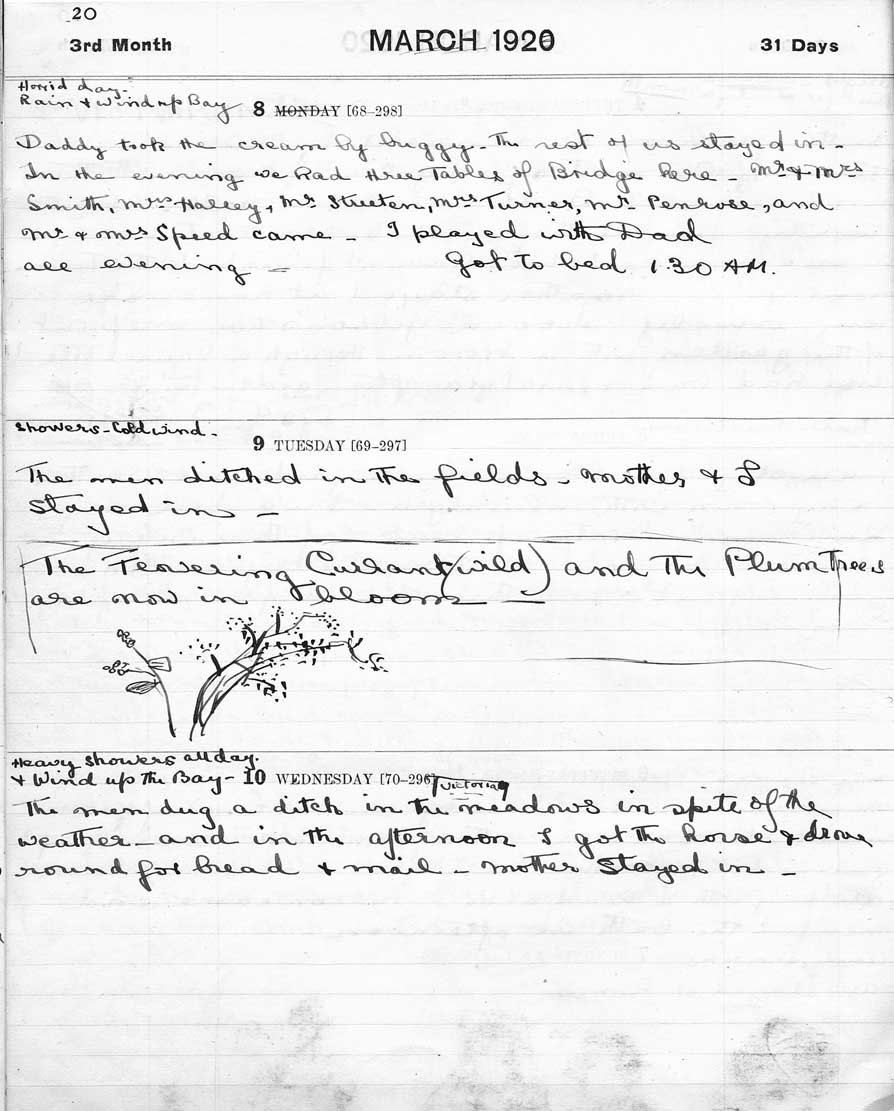 20
3rd Month MARCH 1920 31 Days
Horrid day.
Rain & wind up Bay 8 MONDAY [68–298]
Daddy took the cream by buggy - The rest of us stayed in -
In the evening we had three Tables of Bridge here - Mr & Mrs
Smith, Mrs Halley, Mr Streeten, Mrs Turner, Mr Penrose, and
Mr & Mrs Speed came - I played with Dad
all evening - Got to bed 1.30 AM.
Showers - Cold wind.
9 TUESDAY [69–297]
The men ditched in the fields - Mother & I
stayed in -
The Flowering Currant (wild) and The Plum Trees
are now in bloom -
Heavy showers all day.
& Wind up the Bay - 10 WEDNESDAY [70–296]
Victoria
The men dug a ditch in the meadows in spite of the
weather - and in the afternoon I got the horse & drove
round for bread & mail - Mother stayed in -